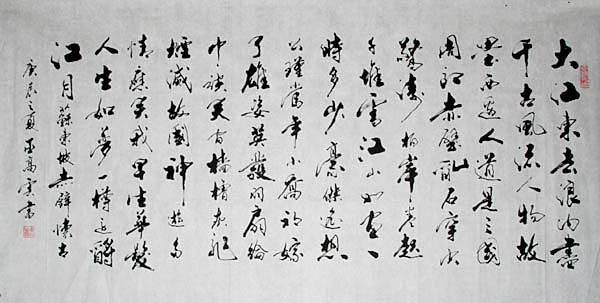 大江東去浪淘盡
千古風流人物故
壘西邊人道是三國
周郎赤壁亂石穿空
驚濤拍岸卷起
千堆雪江山如畫一
時多少豪傑遙想
公瑾當年小喬初嫁
了雄姿英發羽扇綸
巾談笑間檣櫓灰飛
煙滅故國神遊多
情應笑我早生華髮
人生如夢一樽還酹
江月 蘇東坡赤壁懷古
庚辰之夏 書